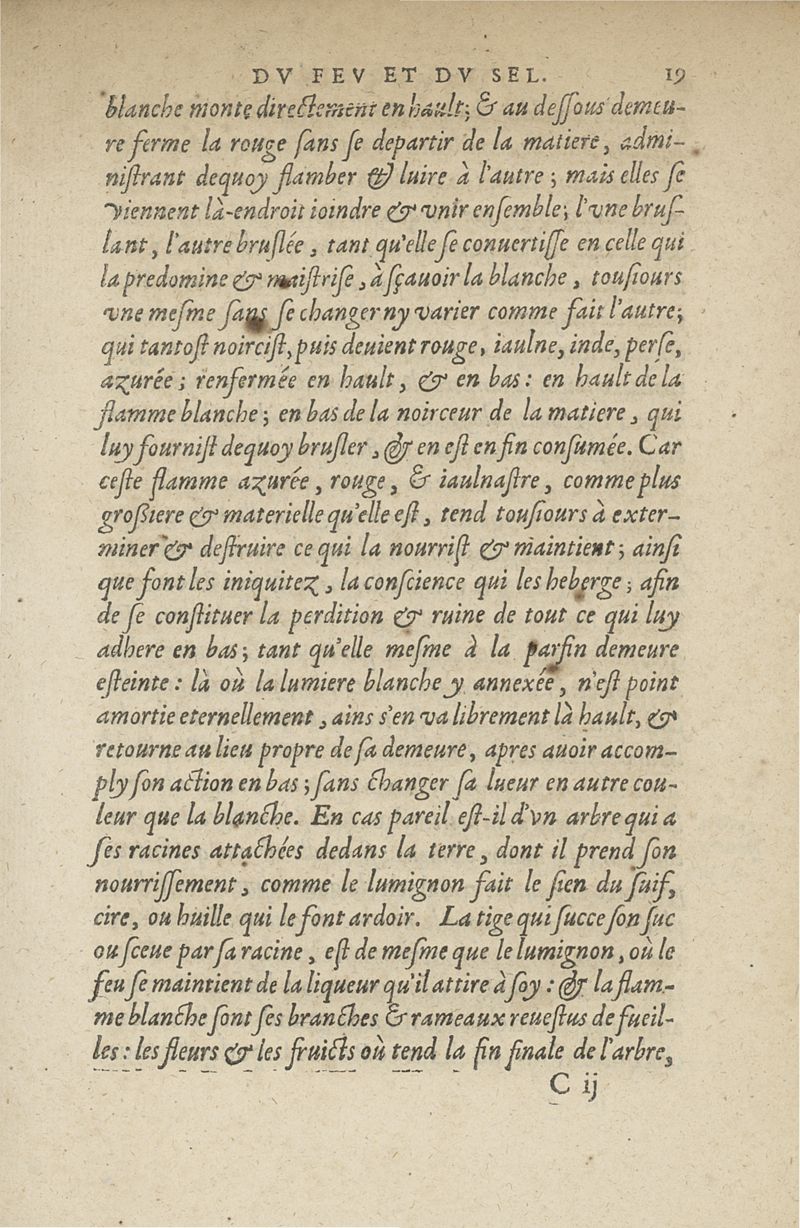 DV FEV ET DV SEL. 19
blanche monte directement en hault; & au deſſous demeu-
re ferme la rouge ſans ſe departir de la matiere, admi-
niſtrant dequoy flamber & luire à l'autre; mais elles ſe
viennent là-endroit ioindre & vnir enſemble; l'vne bruſ-
lant, l'autre bruſlée, tant qu'elle ſe conuertiſſe en celle qui
la predomine & maiſtriſe, à ſçauoir la blanche, touſiours
vne meſme ſans ſe changer ny varier comme fait l'autre;
qui tantoſt noirciſt, puis deuient rouge, iaulne, inde, perſe,
azurée; renfermée en hault, & en bas: en hault de la
flamme blanche; en bas de la noirceur de la matiere, qui
luy fourniſt dequoy bruſler, & en eſt en fin conſumée. Car
ceſte flamme azurée, rouge, & iaulnaſtre, comme plus
groſsiere & materielle qu'elle eſt, tend touſiours à exter-
miner & deſtruire ce qui la nourriſt & maintient; ainſi
que font les iniquitez, la conſcience qui les heberge; afin
de ſe conſtituer la perdition & ruine de tout ce qui luy
adhere en bas; tant qu'elle meſme à la parfin demeure
eſteinte: là où la lumiere blanche y annexée, n'eſt point
amortie eternellement, ains s'en va librement là hault, &
retourne au lieu propre de ſa demeure, apres auoir accom-
ply ſon action en bas; ſans changer ſa lueur en autre cou-
leur que la blanche. En cas pareil eſt-il d'vn arbre qui a
ſes racines attachées dedans la terre, dont il prend ſon
nourriſſement, comme le lumignon fait le ſien du ſuif,
cire, ou huille qui le font ardoir. La tige qui ſucce ſon ſuc
ou ſceue par ſa racine, eſt de meſme que le lumignon, où le
feu ſe maintient de la liqueur qu'il attire à ſoy: & la flam-
me blanche ſont ſes branches & rameaux reueſtus de fueil-
les: les fleurs & les fruicts où tend la fin finale de l'arbre,
C ij